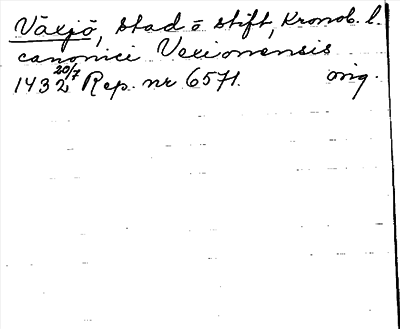 Växjö, stad o stift, Kronob. l.
canonici Vexionensis
1432 20/7 Rep. nr 6571. orig.